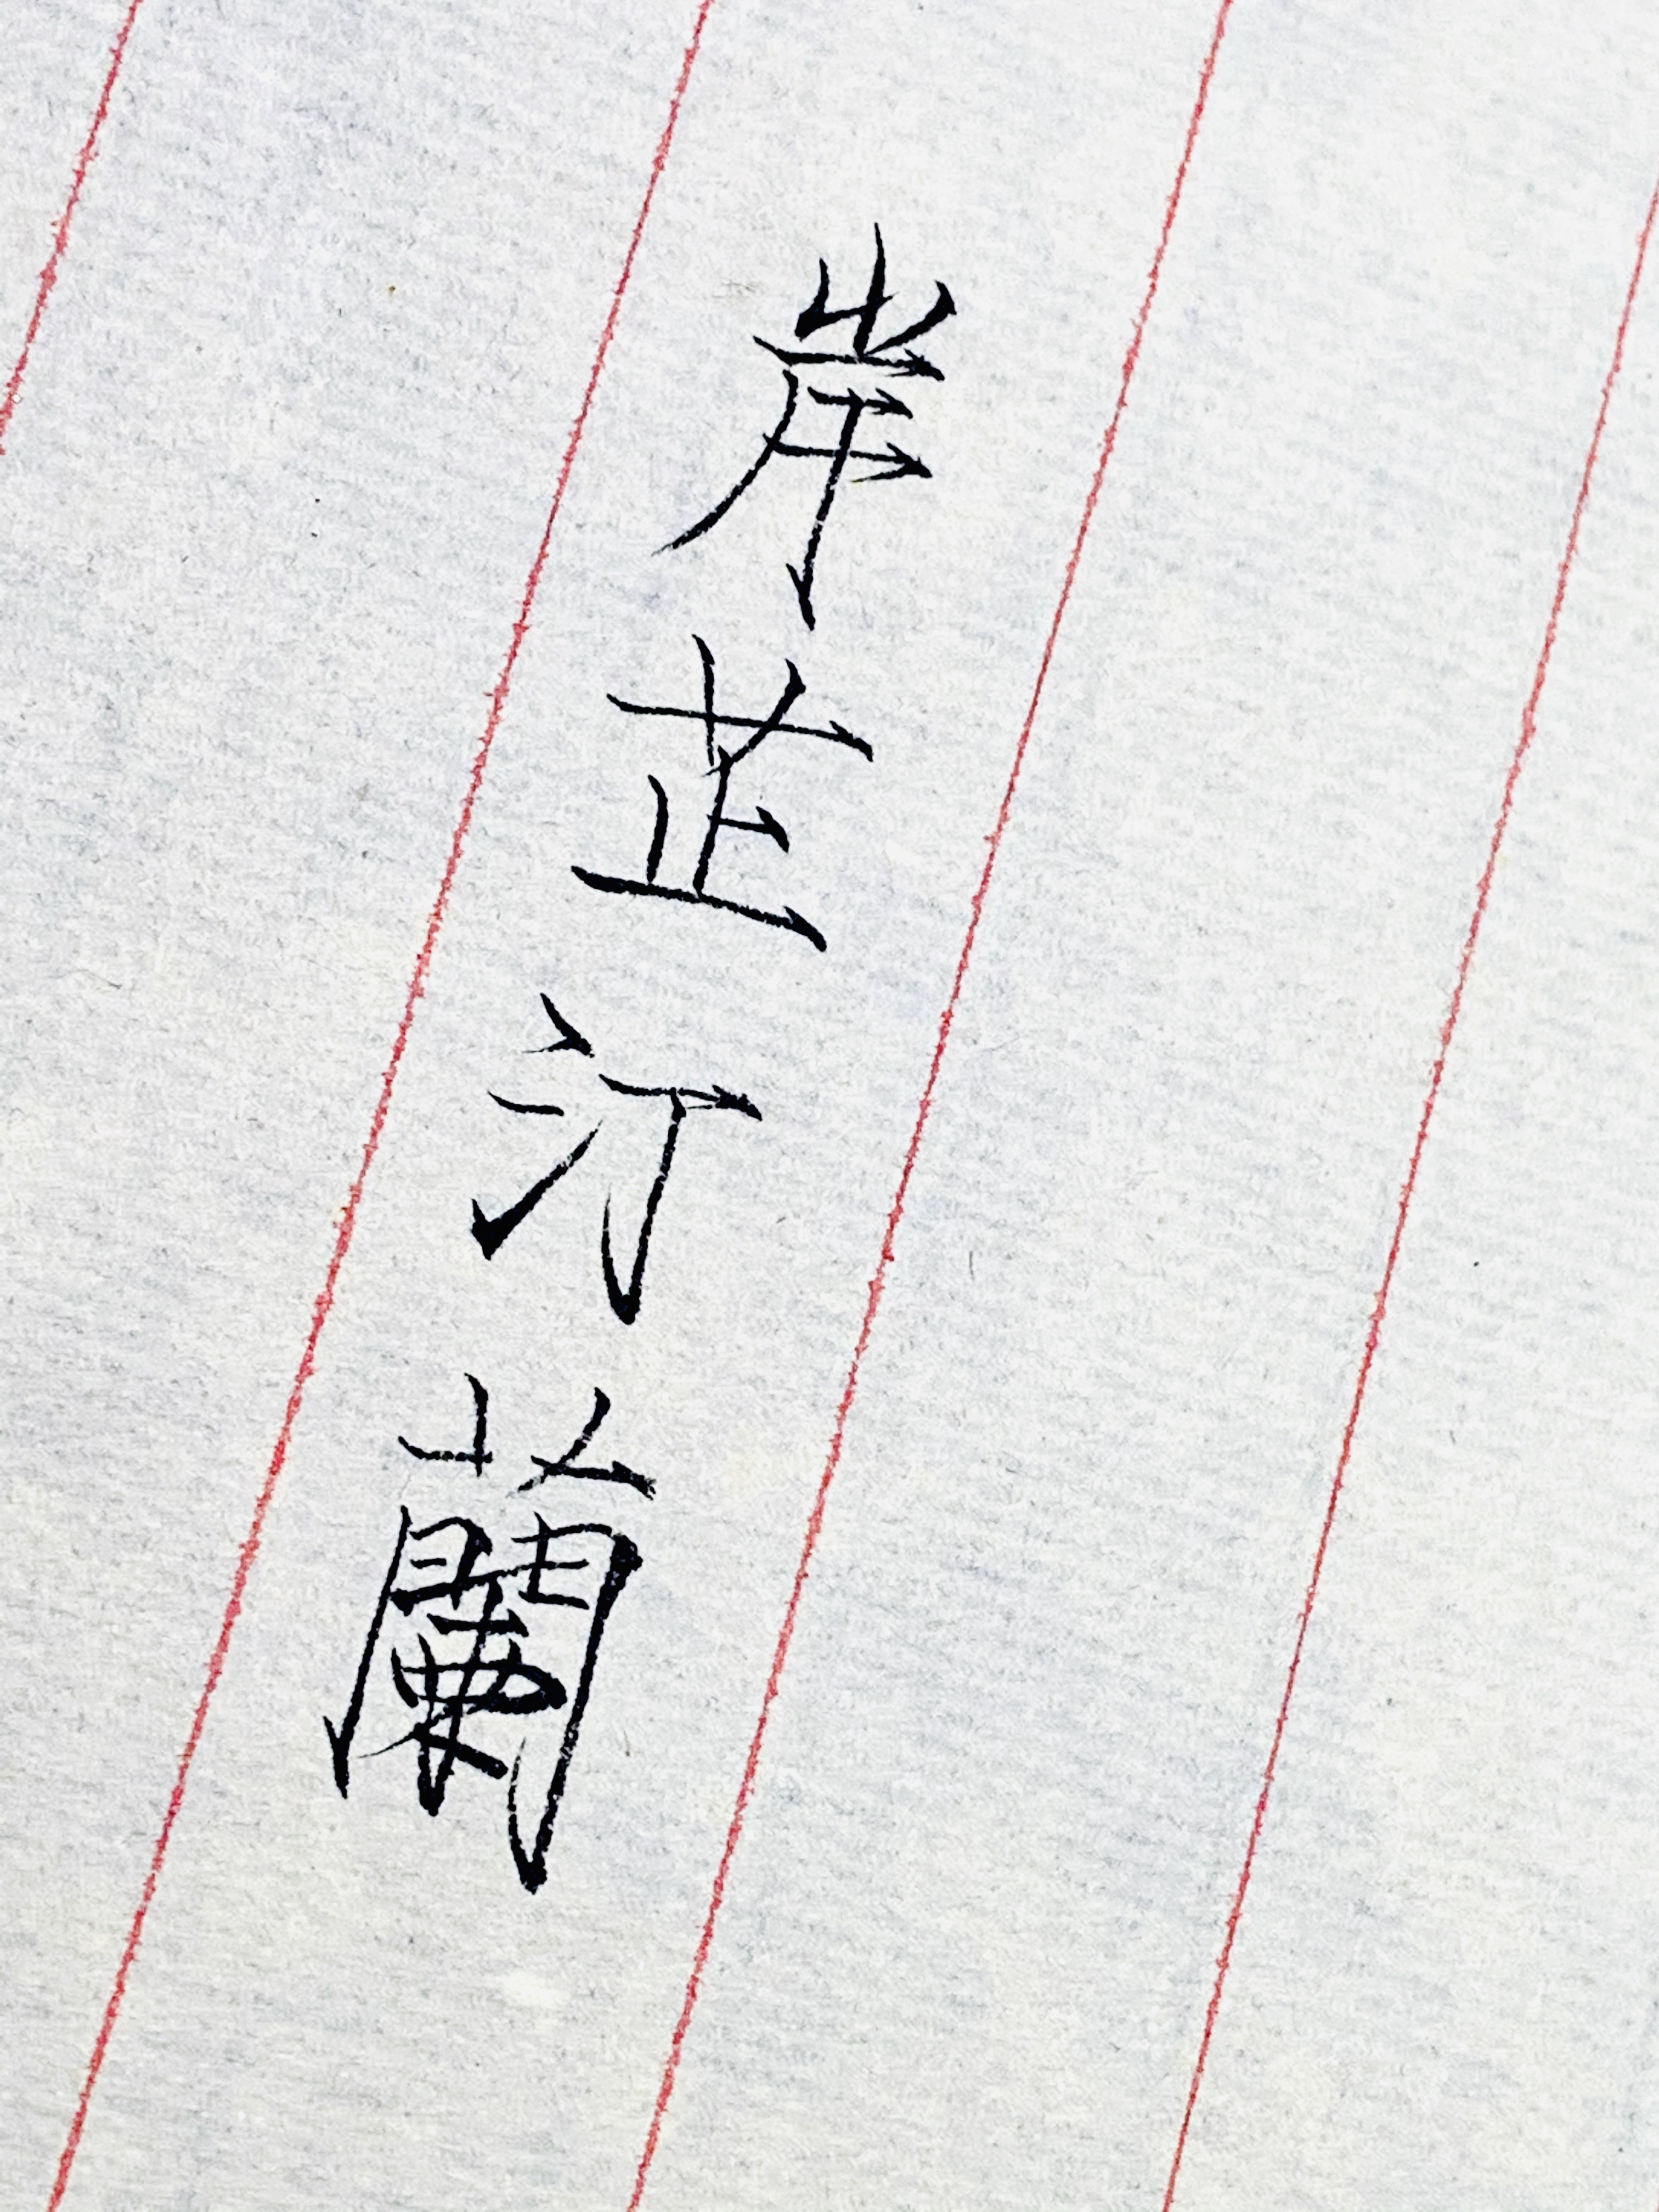 岸芷汀蘭